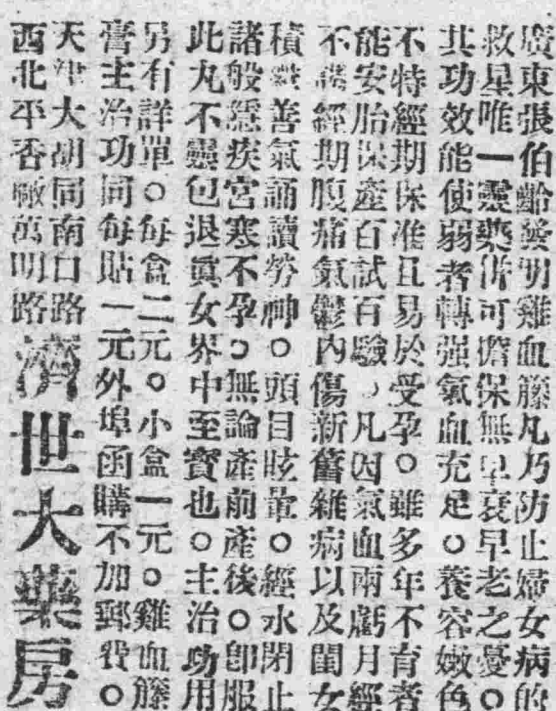 廣東張伯齡發明雞血籐凡乃防止婦女病的
救星唯一靈藥併可擔保無早衰早老之憂○
其功效能使弱者轉强氣血充足○養容嫩色
不特經期保准且易於受孕○雖多年不育者
能安胎保產百試百驗○凡因氣血兩虧月經
不調經期腹痛氣鬱內傷新舊雜病以及閨女
積鬱善氣誦讀勞神○頭目眩暈○經水閉止
諸般隱疾宮寒不孕○無論產前產後○卽服
此丸不靈包退眞女界中至寶也○主治功用
另有詳單○每盒二元○小盒一元○雞血籐
膏主治功同每貼一元外埠函購不加郵費○
天津大胡同南口路
西北平香廠萬明路
濟世大藥房